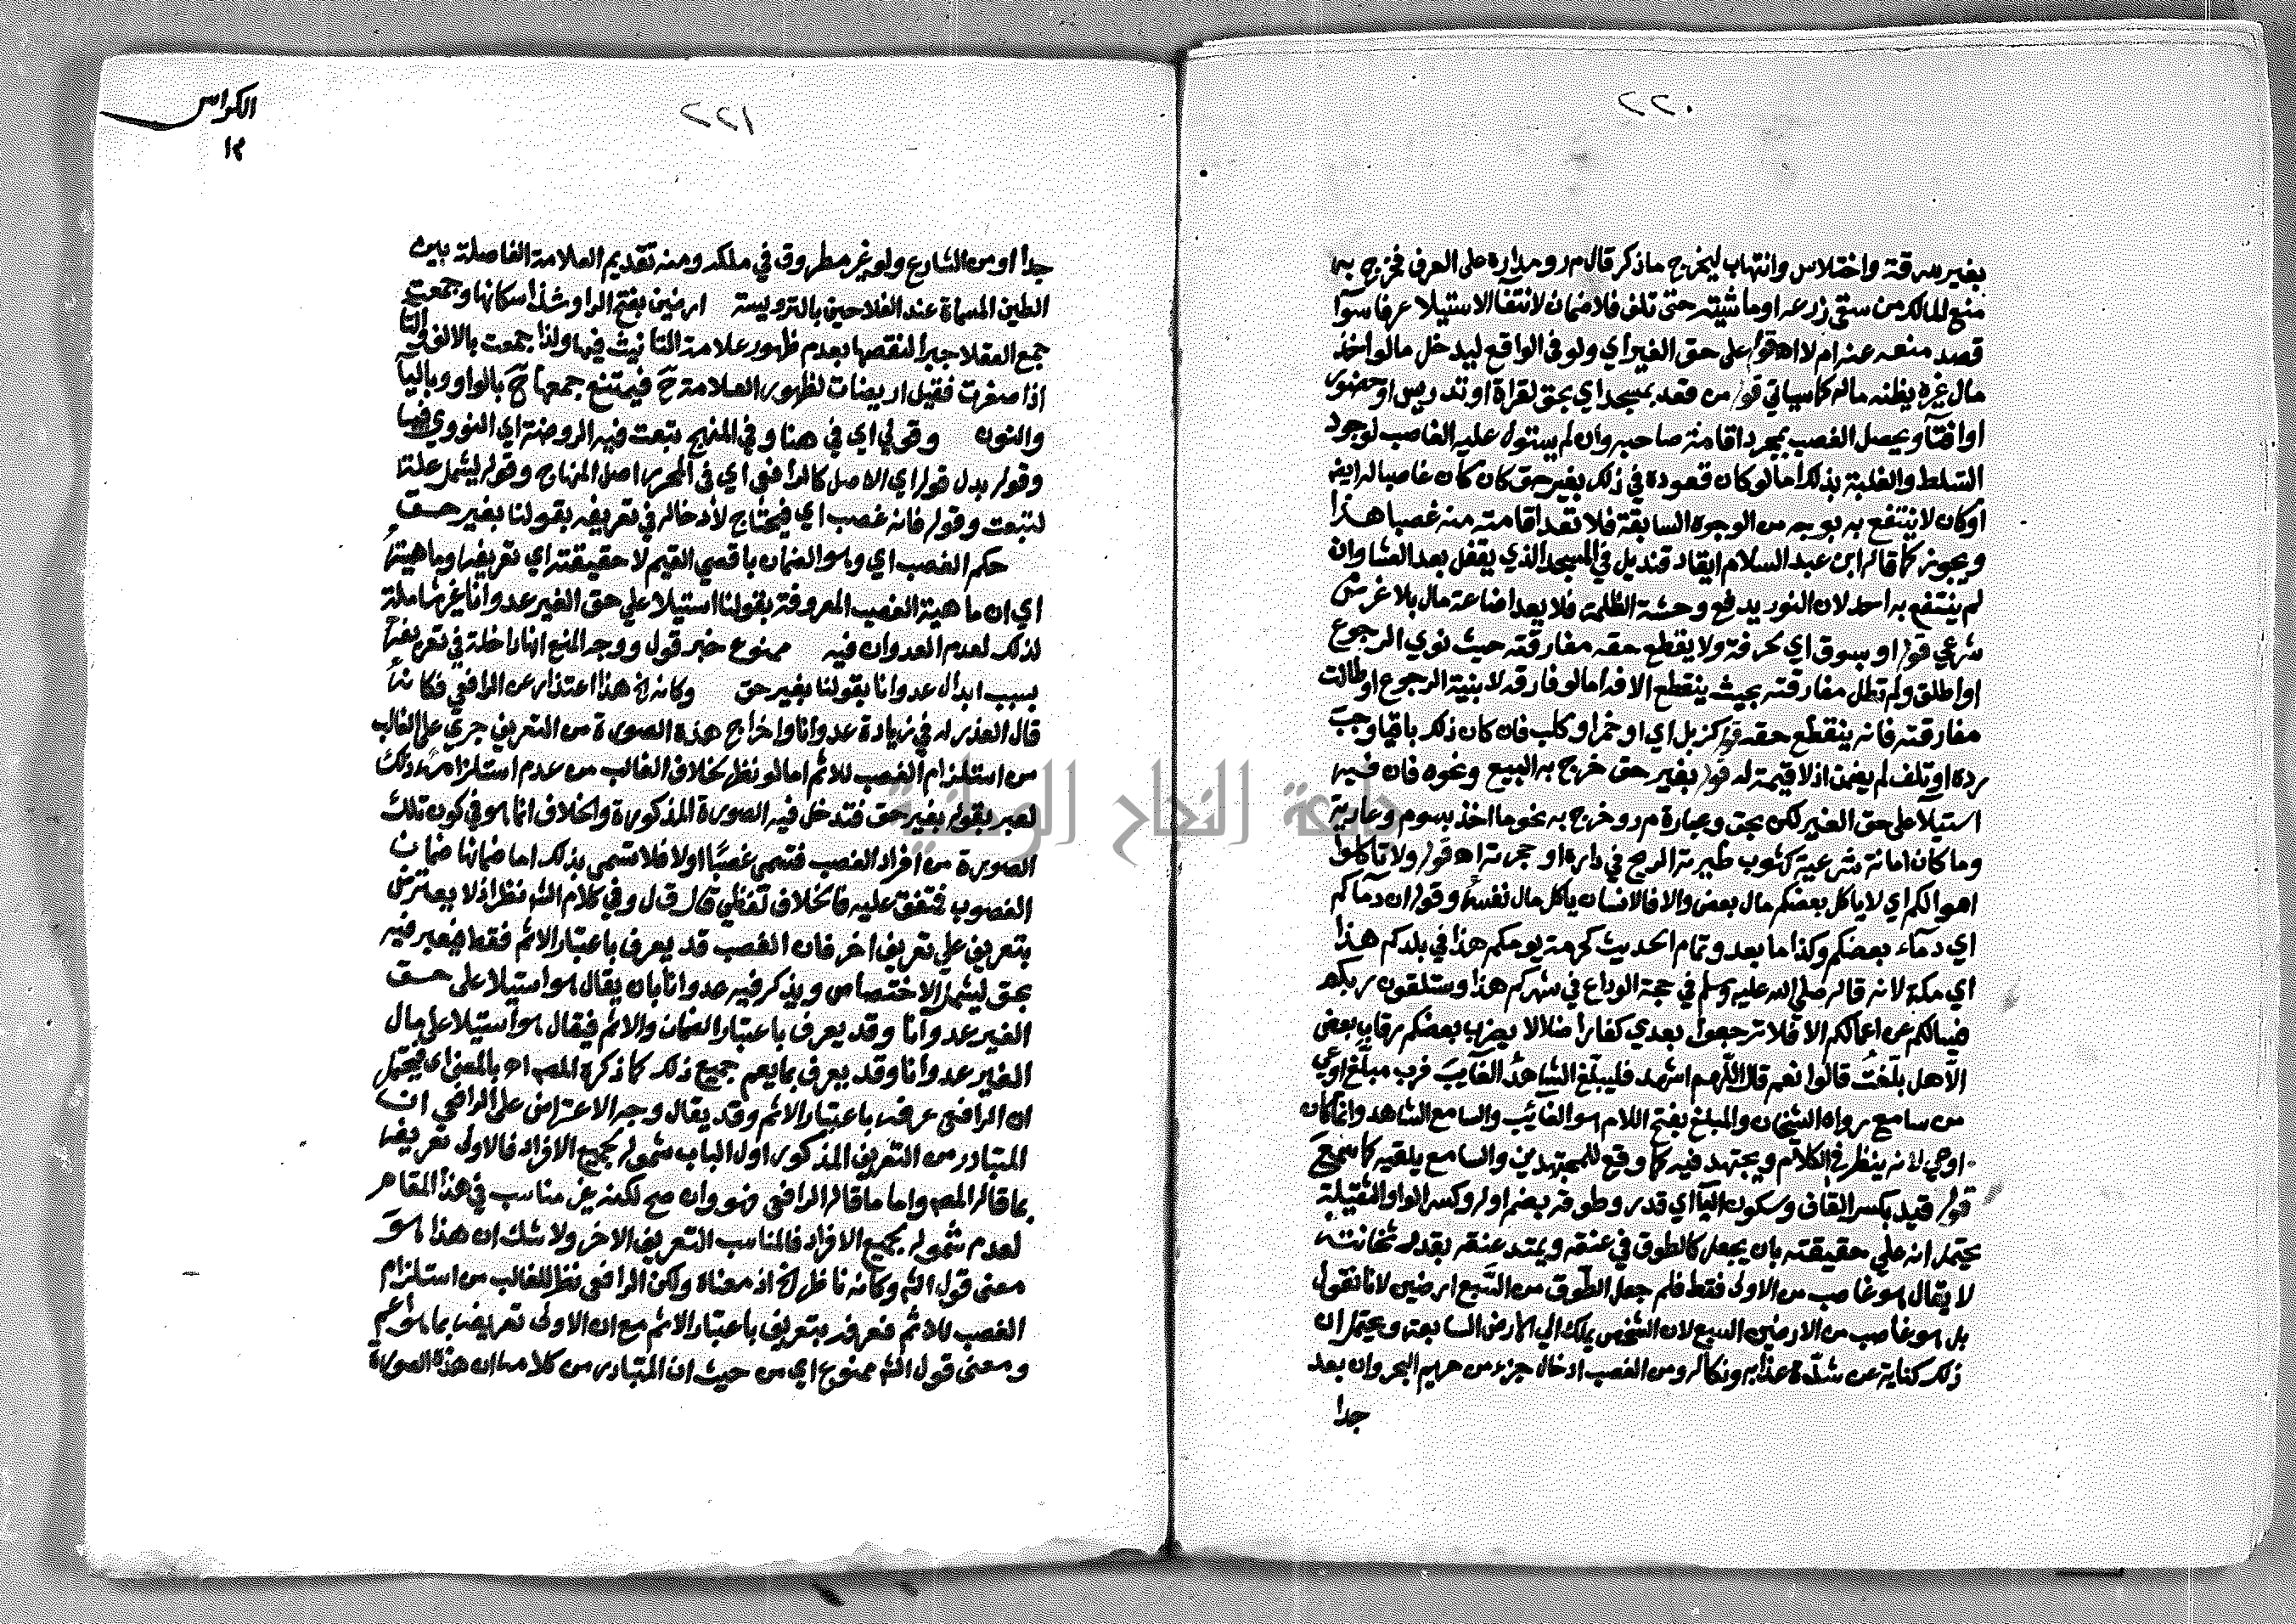 ٢٢٠
بغير سرقة واختلاس وانتهاب ليخرج ما ذكر قال م ر ومداره على العرف فخرج به
منع المالك من سقي زرعه او ماشيته حتى تلف فلا ضمان لانتفا الاستيلا عرفا سوآ
قصد منعه عنه ام لا اه قوله على حق الغير اي ولو في الواقع ليدخل ما لو اخذ
مال غيره يظنه ماله كما سياتي قوله من قعد بمسجد اي بحق لقراة او تدريس او حضور
او افتآ ويحصل الغصب بمجرد اقامته صاحبه وان لم يستول عليه الغاصب لوجود
التسلط والغلبة بذلك اما لو كان قعوده في ذلك بغير حق كان كان غاصبا له ايضا
او كان لا ينتفع به بوجه من الوجوه السابقة فلا تعد اقامته منه غصبا هذا
ويجوز كما قاله ابن عبد السلام ايقاد قنديل في المسجد الذي يقفل بعد العشا وان
لم ينتفع به احد لان النور يدفع وحشة الظلمة فلا يعد اضاعة مال بلا غرض
شرعي قوله او بسوق اي بحرفة ولا يقطع حقه مفارقته حيث نوي الرجوع
او اطلق ولم تطل مفارقته بحيث ينقطع الافه اما لو فارقه لا بنية الرجوع او طالت
مفارقته فانه ينقطع حقه قوله كزبل اي او خمر او كلب فان كان ذلك باقيا وجب
رده او تلف لم يضمن اذ لا قيمة له قوله بغير حق خرج به البيع ونحوه فان فيه
استيلآ على حق الغير لكن بحق وعبارة م ر وخرج به نحو ما اخذ بسوم وعارية
وما كان امانة شرعية كثوب طيرته الريح في داره او حجرته اه قوله ولا تاكلوا
اموالكم اي لا ياكل بعضكم مال بعض والا فالانسان ياكل مال نفسه وقوله ان دمآكم
اي دمآء بعضكم وكذا ما بعد وتمام الحديث كحرمة يومكم هذا في بلدكم هذا
اي مكة لانه قاله صلي الله عليه وسلم في حجة الوداع في شهركم هذا وستلقون ربكم
فيسالكم عن اعمالكم الا فلا ترجعوا بعدي كفارا ضلالا يضرب بعضكم رقاب بعض
الا هل بلغت قالوا نعم قال اللهم اشهد فليبلغ الشاهد الغآيب فرب مبلغ اوعي
من سامع رواه الشيخان والمبلغ بفتح اللام هو الغائب والسامع الشاهد وانما كان
اوعي لانه ينظر في الكلام ويجتهد فيه كما وقع للمجتهدين والسامع يلقيه كما سمع
قوله قيد بكسر القاف وسكون اليآ اي قدر وطوقه بضم اوله وكسر الواو الثقيلة
يحتمل انه علي حقيقته بان يجعل كالطوق في عنقه ويمتد عنقه بقدر ثخانته
لا يقال هو غاصب من الاولى فقط فلم جعل الطوق من السبع ارضين لانا نقول
بل هو غاصب من الارضين السبع لان الشخص يملك الي الارض السابعة ويحتمل ان
ذلك كناية عن شدة عذابه ونكاله ومن الغصب ادخال جزء من حريم البحر وان بعد
جدا
٢٢١
الكراس
١٢
جدا او من الشارع ولو غير مطروق في ملكه ومنه تقديم العلامة الفاصلة بين
الطين المسماة عند الفلاحين بالترويسة ارضين بفتح الرا وشذ اسكانها وجمعت
جمع العقلا جبرا لنقصها بعدم ظهور علامة التانيث فيها ولذا جمعت بالالف والتا
اذا صغرت فقيل اريضات لظهور العلامة ح فيمتنع جمعها ح بالواو وباليآ
والنون وقولي اي في هنا وفي المنهج تبعت فيه الروضة اي النووي فيها
وقوله بدل قوله اي الاصل كالرافعي اي في المحرر اصل المنهاج وقوله ليشمل علة
لتبعت وقوله فانه غصب اي فيحتاج لادخاله في تعريفه بقولنا بغير حق
حكم الغصب اي وهو الضمان باقصي القيم لا حقيقته اي تعريفها وماهيتها
اي ان ماهية الغصب المعروفة بقولنا استيلا علي حق الغير عدوانا غير شاملة
لذلك لعدم العدوان فيه ممنوع خبر قول ووجه المنع انها داخلة في تعريفها
بسبب ابدال عدوانا بقولنا بغير حق وكانه الخ هذا اعتذار عن الرافعي فكانه
قال العذر له في زيادة عدوانا واخراج هذه الصورة من التعريف جري على الغالب
من استلزام الغصب للاثم اما لو نظر لخلاف الغالب من عدم استلزامه ذلك
لعبر بقوله بغير حق فتدخل فيه الصورة المذكورة والخلاف انما هو في كون تلك
الصورة من افراد الغصب فتسمى غصبا اولا فلا تسمى بذلك اما ضمانها ضمان
الغصوب فمتفق عليه فالخلاف لفظي قال ق ل وفي كلام الش نظر اذ لا يعترض
بتعريف علي تعريف اخر فان الغصب قد يعرف باعتبار الاثم فقط فيعبر فيه
بحق ليشمل الاختصاص ويذكر فيه عدوانا بان يقال هو استيلا على حق
الغير عدوانا وقد يعرف باعتبار الضمان والاثم فيقال هو استيلا على مال
الغير عدوانا وقد يعرف بما يعم جميع ذلك كما ذكره المص اه بالمعنى اي فيحتمل
ان الرافعي عرفه باعتبار الاثم وقد يقال وجه الاعتراض على الرافعي ان
المتبادر من التعريف المذكور اول الباب شموله لجميع الافراد فالاولى تعريفه
بما قاله المص واما ما قاله الرافعي فهو وان صح لكنه غير مناسب في هذا المقام
لعدم شموله لجميع الافراد فالمناسب التعريف الاخر ولا شك ان هذا هو
معنى قول الش وكانه نظر الخ اذ معناه ولكن الرافعي نظر للغالب من استلزام
الغصب للاثم فعرفه بتعريف باعتبار الاثم مع ان الاولى تعريفه بما هو اعم
ومعنى قول الش ممنوع اي من حيث ان المتبادر من كلامه ان هذه الصورة
جامعة النجاح الوطنية